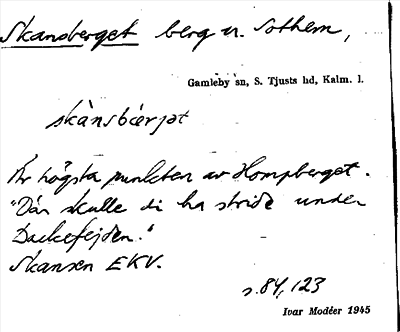 Skansberget berg n. Sothem,
Gamleby sn, S. Tjusts hd, Kalm. l.
skànsbærjət
Är högsta punkten av Hompberget.
"Där skulle di ha stride under
Dackefejden."
Skansen EKV.
s. 84, 123
Ivar Modéer 1945